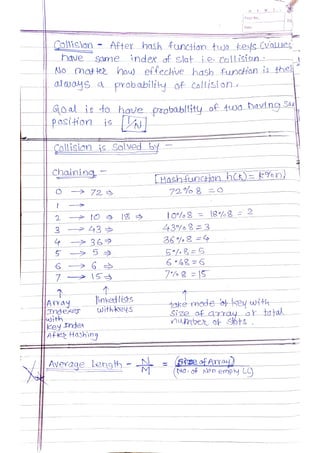 Collision - After hash function two keys (values
have same index of slot i.e. collision.
No matter how effective hash function is thei
always a probability of collision.
Goal is to have probability of two having sa
position is 1/N
Collision is solved by -
Chaining - [Hashfunction h(k) = k%n]
0 → 72 ⇒ 72%8 = 0
1 →
2 → 10 ⇒ 18 ⇒ 10%8 = 18%8 = 2
3 → 43 ⇒ 43%8 = 3
4 → 36 ⇒ 36%8 = 4
5 → 5 ⇒ 5%8 = 5
6 → 6 ⇒ 6%8 = 6
7 → 15 ⇒ 7%8 = 15
↑ ↑ ↑
Array linkedlists take mode of key with
Indexes with keys size of array or total
with number of slots.
key Index
After Hashing
Average Length - N/M = (Size of Array)
(No. of Non empty LL)